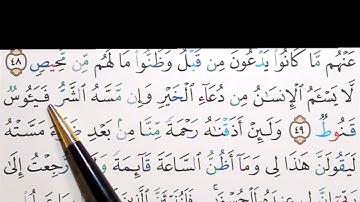 عَنْهُم مَّا كَانُوا۟ يَدْعُونَ مِن قَبْلُ وَظَنُّوا۟ مَا لَهُم مِّن مَّحِيصٍ ٤٨
لَّا يَسْـَٔمُ ٱلْإِنسَٰنُ مِن دُعَآءِ ٱلْخَيْرِ وَإِن مَّسَّهُ ٱلشَّرُّ فَيَـُٔوسٌ
قَنُوطٌ ٤٩ وَلَئِنْ أَذَقْنَٰهُ رَحْمَةً مِّنَّا مِنۢ بَعْدِ مَسَّتْهُ
لَيَقُولَنَّ هَٰذَا لِى وَمَآ أَظُنُّ ٱلسَّاعَةَ قَآئِمَةً رُّجِعْتُ إِلَىٰ
رَبِّىٓ إِنَّ لِى عِندَهُۥ لَلْحُسْنَىٰ